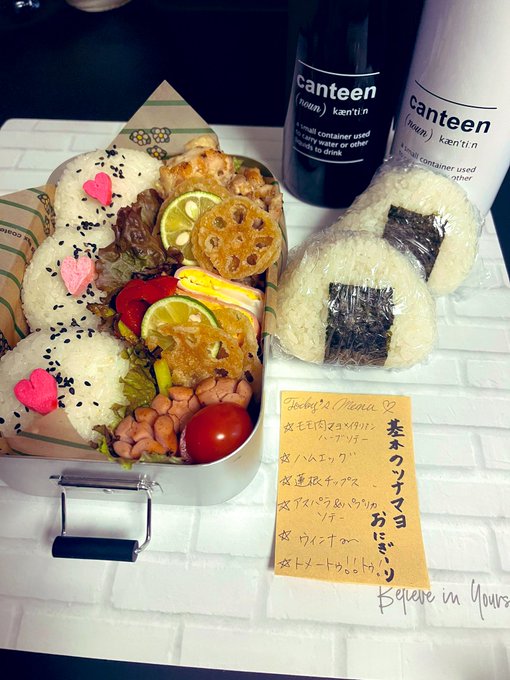 canteen
(noun) kæn'ti:n
a small container used
to carry water or other
liquids to drink
canteen
(noun) kæn'ti:n
a small container used
to carry water or other
Today's Menu ♡
☆モモ肉マヨ×イタリアン
ハーブソテー
☆ハムエッグ
☆蓮根チップス
☆アスパラ&パプリカ
ソテー
☆ウィンナー
☆トメートゥ!!トゥ!
基本のツナマヨ
おにぎーり
Believe in Yours